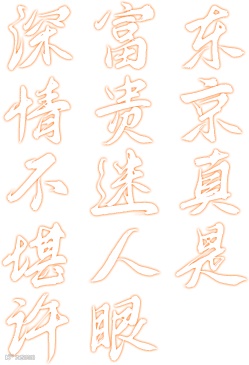 东京真是
富贵迷人眼
深情不堪许